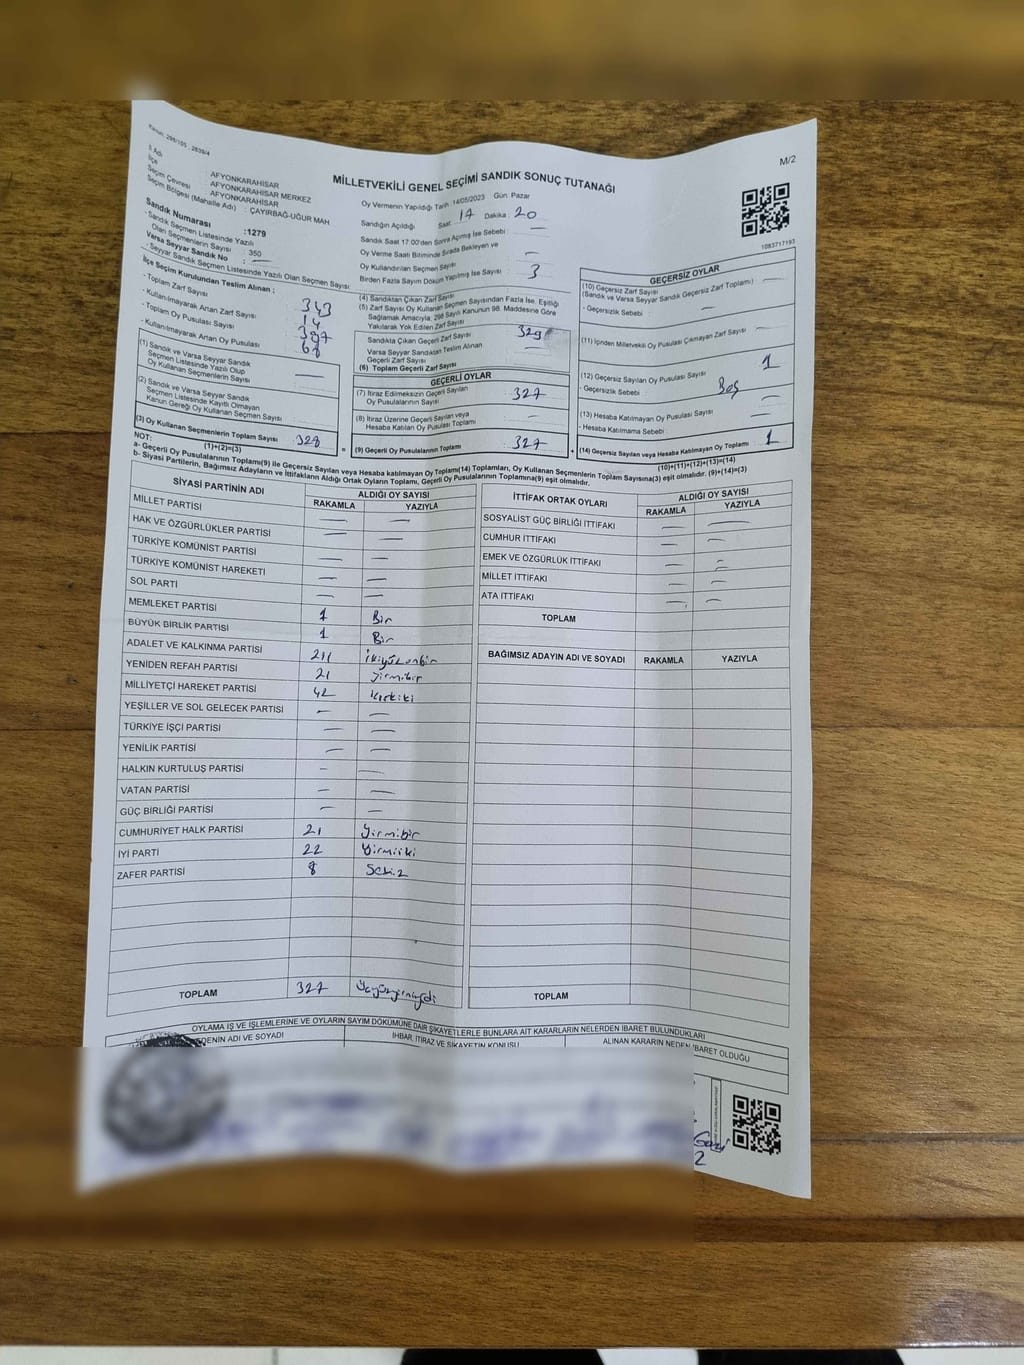 Kanun: 298/105 , 2839/4
M/2
MİLLETVEKİLİ GENEL SEÇİMİ SANDIK SONUÇ TUTANAĞI
İl Adı : AFYONKARAHİSAR
İlçe : AFYONKARAHİSAR MERKEZ
Seçim Çevresi : AFYONKARAHİSAR
Seçim Bölgesi (Mahalle Adı) : ÇAYIRBAĞ-UĞUR MAH
Sandık Numarası :1279
- Sandık Seçmen Listesinde Yazılı
Olan Seçmenlerin Sayısı : 350
Varsa Seyyar Sandık No : —
- Seyyar Sandık Seçmen Listesinde Yazılı Olan Seçmen Sayısı:
İlçe Seçim Kurulundan Teslim Alınan ;
- Toplam Zarf Sayısı 343
- Kullanılmayarak Artan Zarf Sayısı 14
- Toplam Oy Pusulası Sayısı
- Kullanılmayarak Artan Oy Pusulası
(1) Sandık ve Varsa Seyyar Sandık
Seçmen Listesinde Yazılı Olup
Oy Kullanan Seçmenlerin Sayısı —
(2) Sandık ve Varsa Seyyar Sandık
Seçmen Listesinde Kayıtlı Olmayan
Kanun Gereği Oy Kullanan Seçmen Sayısı
(3) Oy Kullanan Seçmenlerin Toplam Sayısı 328
(1)+(2)=(3)
Oy Vermenin Yapıldığı Tarih :14/05/2023 Gün: Pazar
Sandığın Açıldığı Saat 17 Dakika 20
Sandık Saat 17:00'den Sonra Açılmış İse Sebebi : —
Oy Verme Saati Bitiminde Sırada Bekleyen ve
Oy Kullandırılan Seçmen Sayısı —
Birden Fazla Sayım Döküm Yapılmış İse Sayısı 3
(4) Sandıktan Çıkan Zarf Sayısı
(5) Zarf Sayısı Oy Kullanan Seçmen Sayısından Fazla İse, Eşitliği
Sağlamak Amacıyla; 298 Sayılı Kanunun 98. Maddesine Göre
Yakılarak Yok Edilen Zarf Sayısı
Sandıkta Çıkan Geçerli Zarf Sayısı
Varsa Seyyar Sandıktan Teslim Alınan
Geçerli Zarf Sayısı —
(6) Toplam Geçerli Zarf Sayısı
GEÇERLİ OYLAR
(7) İtiraz Edilmeksizin Geçerli Sayılan
Oy Pusulalarının Sayısı 327
(8) İtiraz Üzerine Geçerli Sayılan veya
Hesaba Katılan Oy Pusulaları Toplamı —
(9) Geçerli Oy Pusulalarının Toplamı 327
1083717193
GEÇERSİZ OYLAR
(10) Geçersiz Zarf Sayısı —
(Sandık ve Varsa Seyyar Sandık Geçersiz Zarf Toplamı)
- Geçersizlik Sebebi : —
(11) İçinden Milletvekili Oy Pusulası Çıkmayan Zarf Sayısı —
(12) Geçersiz Sayılan Oy Pusulası Sayısı 1
- Geçersizlik Sebebi Boş
(13) Hesaba Katılmayan Oy Pusulası Sayısı —
- Hesaba Katılmama Sebebi : —
(14) Geçersiz Sayılan veya Hesaba Katılmayan Oy Toplamı 1
(10)+(11)+(12)+(13)=(14)
NOT:
a- Geçerli Oy Pusulalarının Toplamı(9) ile Geçersiz Sayılan veya Hesaba katılmayan Oy Toplam(14) Toplamları, Oy Kullanan Seçmenlerin Toplam Sayısına(3) eşit olmalıdır. (9)+(14)=(3)
b- Siyasi Partilerin, Bağımsız Adayların ve İttifakların Aldığı Ortak Oyların Toplamı, Geçerli Oy Pusulalarının Toplamına(9) eşit olmalıdır.
SİYASİ PARTİNİN ADI ALDIĞI OY SAYISI
RAKAMLA YAZIYLA
MİLLET PARTİSİ — —
HAK VE ÖZGÜRLÜKLER PARTİSİ — —
TÜRKİYE KOMÜNİST PARTİSİ — —
TÜRKİYE KOMÜNİST HAREKETİ — —
SOL PARTİ — —
MEMLEKET PARTİSİ 1 Bir
BÜYÜK BİRLİK PARTİSİ 1 Bir
ADALET VE KALKINMA PARTİSİ 211 ikiyüzonbir
YENİDEN REFAH PARTİSİ 21 yirmibir
MİLLİYETÇİ HAREKET PARTİSİ 42 kırkiki
YEŞİLLER VE SOL GELECEK PARTİSİ — —
TÜRKİYE İŞÇİ PARTİSİ — —
YENİLİK PARTİSİ — —
HALKIN KURTULUŞ PARTİSİ — —
VATAN PARTİSİ — —
GÜÇ BİRLİĞİ PARTİSİ — —
CUMHURİYET HALK PARTİSİ 21 Yirmibir
İYİ PARTİ 22 Yirmiiki
ZAFER PARTİSİ 8 Sekiz
TOPLAM 327 Üçyüzyirmiyedi
İTTİFAK ORTAK OYLARI ALDIĞI OY SAYISI
RAKAMLA YAZIYLA
SOSYALİST GÜÇ BİRLİĞİ İTTİFAKI — —
CUMHUR İTTİFAKI — —
EMEK VE ÖZGÜRLÜK İTTİFAKI — —
MİLLET İTTİFAKI — —
ATA İTTİFAKI — —
TOPLAM
BAĞIMSIZ ADAYIN ADI VE SOYADI RAKAMLA YAZIYLA
TOPLAM
OYLAMA İŞ VE İŞLEMLERİNE VE OYLARIN SAYIM DÖKÜMÜNE DAİR ŞİKAYETLERLE BUNLARA AİT KARARLARIN NELERDEN İBARET BULUNDUKLARI
EDENİN ADI VE SOYADI İHBAR, İTİRAZ VE ŞİKAYETİN KONUSU ALINAN KARARIN NEDEN İBARET OLDUĞU